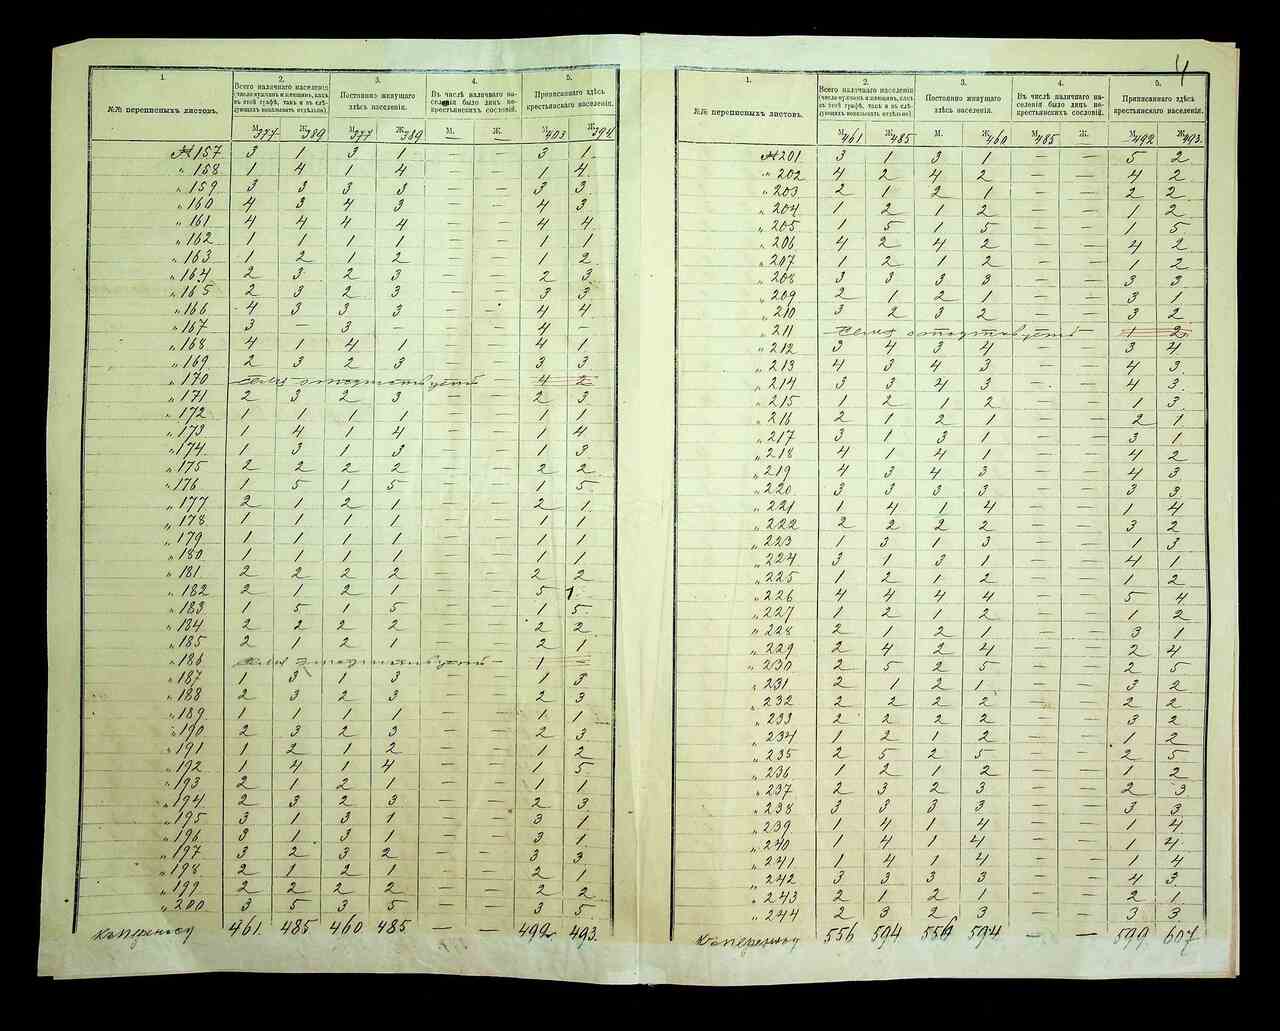 4
1. 2. 3. 4. 5.
№№ переписныхъ листовъ. Всего наличнаго населенія (число мужчинъ и женщинъ, какъ въ этой графѣ, такъ и въ слѣдующихъ показывать отдѣльно). Постоянно живущаго здѣсь населенія. Въ числѣ наличнаго населенія было лицъ не-крестьянскихъ сословій. Приписаннаго здѣсь крестьянскаго населенія.
М. 377 Ж. 389 М. 377 Ж. 389 М. — Ж. — М. 403 Ж. 394
№ 157 3 1 3 1 — — 3 1
„ 158 1 4 1 4 — — 1 4
„ 159 3 3 3 3 — — 3 3
„ 160 4 3 4 3 — — 4 3
„ 161 4 4 4 4 — — 4 4
„ 162 1 1 1 1 — — 1 1
„ 163 1 2 1 2 — — 1 2
„ 164 2 3 2 3 — — 2 3
„ 165 2 3 2 3 — — 3 3
„ 166 4 3 3 3 — — 4 4
„ 167 3 — 3 — — — 4 —
„ 168 4 1 4 1 — — 4 1
„ 169 2 3 2 3 — — 3 3
„ 170 семья отсутствуетъ — 4 2
„ 171 2 3 2 3 — — 2 3
„ 172 1 1 1 1 — — 1 1
„ 173 1 4 1 4 — — 1 4
„ 174 1 3 1 3 — — 1 3
„ 175 2 2 2 2 — — 2 2
„ 176 1 5 1 5 — — 1 5
„ 177 2 1 2 1 — — 2 1
„ 178 1 1 1 1 — — 1 1
„ 179 1 1 1 1 — — 1 1
„ 180 1 1 1 1 — — 1 1
„ 181 2 2 2 2 — — 2 2
„ 182 2 1 2 1 — — 5 1
„ 183 1 5 1 5 — — 1 5
„ 184 2 2 2 2 — — 2 2
„ 185 2 1 2 1 — — 2 1
„ 186 семья отсутствуетъ — 1 —
„ 187 1 3 1 3 — — 1 3
„ 188 2 3 2 3 — — 2 3
„ 189 1 1 1 1 — — 1 1
„ 190 2 3 2 3 — — 2 3
„ 191 1 2 1 2 — — 1 2
„ 192 1 4 1 4 — — 1 5
„ 193 2 1 2 1 — — 1 1
„ 194 2 3 2 3 — — 2 3
„ 195 3 1 3 1 — — 3 1
„ 196 3 1 3 1 — — 3 1
„ 197 3 2 3 2 — — 3 3
„ 198 2 1 2 1 — — 2 1
„ 199 2 2 2 2 — — 2 2
„ 200 3 5 3 5 — — 3 5
Къ переносу 461 485 460 485 — — 492 493
1. 2. 3. 4. 5.
№№ переписныхъ листовъ. Всего наличнаго населенія (число мужчинъ и женщинъ, какъ въ этой графѣ, такъ и въ слѣдующихъ показывать отдѣльно). Постоянно живущаго здѣсь населенія. Въ числѣ наличнаго населенія было лицъ не-крестьянскихъ сословій. Приписаннаго здѣсь крестьянскаго населенія.
М. 461 Ж. 485 М. Ж. 460 М. 485 Ж. М. 492 Ж. 493
№ 201 3 1 3 1 — — 5 2
„ 202 4 2 4 2 — — 4 2
„ 203 2 1 2 1 — — 2 2
„ 204 1 2 1 2 — — 1 2
„ 205 1 5 1 5 — — 1 5
„ 206 4 2 4 2 — — 4 2
„ 207 1 2 1 2 — — 1 2
„ 208 3 3 3 3 — — 3 3
„ 209 2 1 2 1 — — 3 1
„ 210 3 2 3 2 — — 3 2
„ 211 семья отсутствуетъ — 1 2
„ 212 3 4 3 4 — — 3 4
„ 213 4 3 4 3 — — 4 3
„ 214 3 3 4 3 — — 4 3
„ 215 1 2 1 2 — — 1 3
„ 216 2 1 2 1 — — 2 1
„ 217 3 1 3 1 — — 3 1
„ 218 4 1 4 1 — — 4 2
„ 219 4 3 4 3 — — 4 3
„ 220 3 3 3 3 — — 3 3
„ 221 1 4 1 4 — — 1 4
„ 222 2 2 2 2 — — 3 2
„ 223 1 3 1 3 — — 1 3
„ 224 3 1 3 1 — — 4 1
„ 225 1 2 1 2 — — 1 2
„ 226 4 4 4 4 — — 5 4
„ 227 1 2 1 2 — — 1 2
„ 228 2 1 2 1 — — 3 1
„ 229 2 4 2 4 — — 2 4
„ 230 2 5 2 5 — — 2 5
„ 231 2 1 2 1 — — 3 2
„ 232 2 2 2 2 — — 2 2
„ 233 2 2 2 2 — — 3 2
„ 234 1 2 1 2 — — 1 2
„ 235 2 5 2 5 — — 2 5
„ 236 1 2 1 2 — — 1 2
„ 237 2 3 2 3 — — 2 3
„ 238 3 3 3 3 — — 3 3
„ 239 1 4 1 4 — — 1 4
„ 240 1 4 1 4 — — 1 4
„ 241 1 4 1 4 — — 1 4
„ 242 3 3 3 3 — — 4 3
„ 243 2 1 2 1 — — 2 1
„ 244 2 3 2 3 — — 3 3
Къ переносу 556 594 556 594 — — 599 607